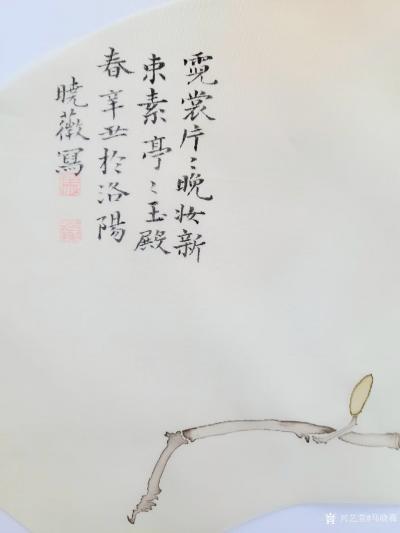 霓裳片〻晚妆新
束素亭〻玉殿
春辛丑於洛陽
曉薇寫
兴艺堂#马晓薇